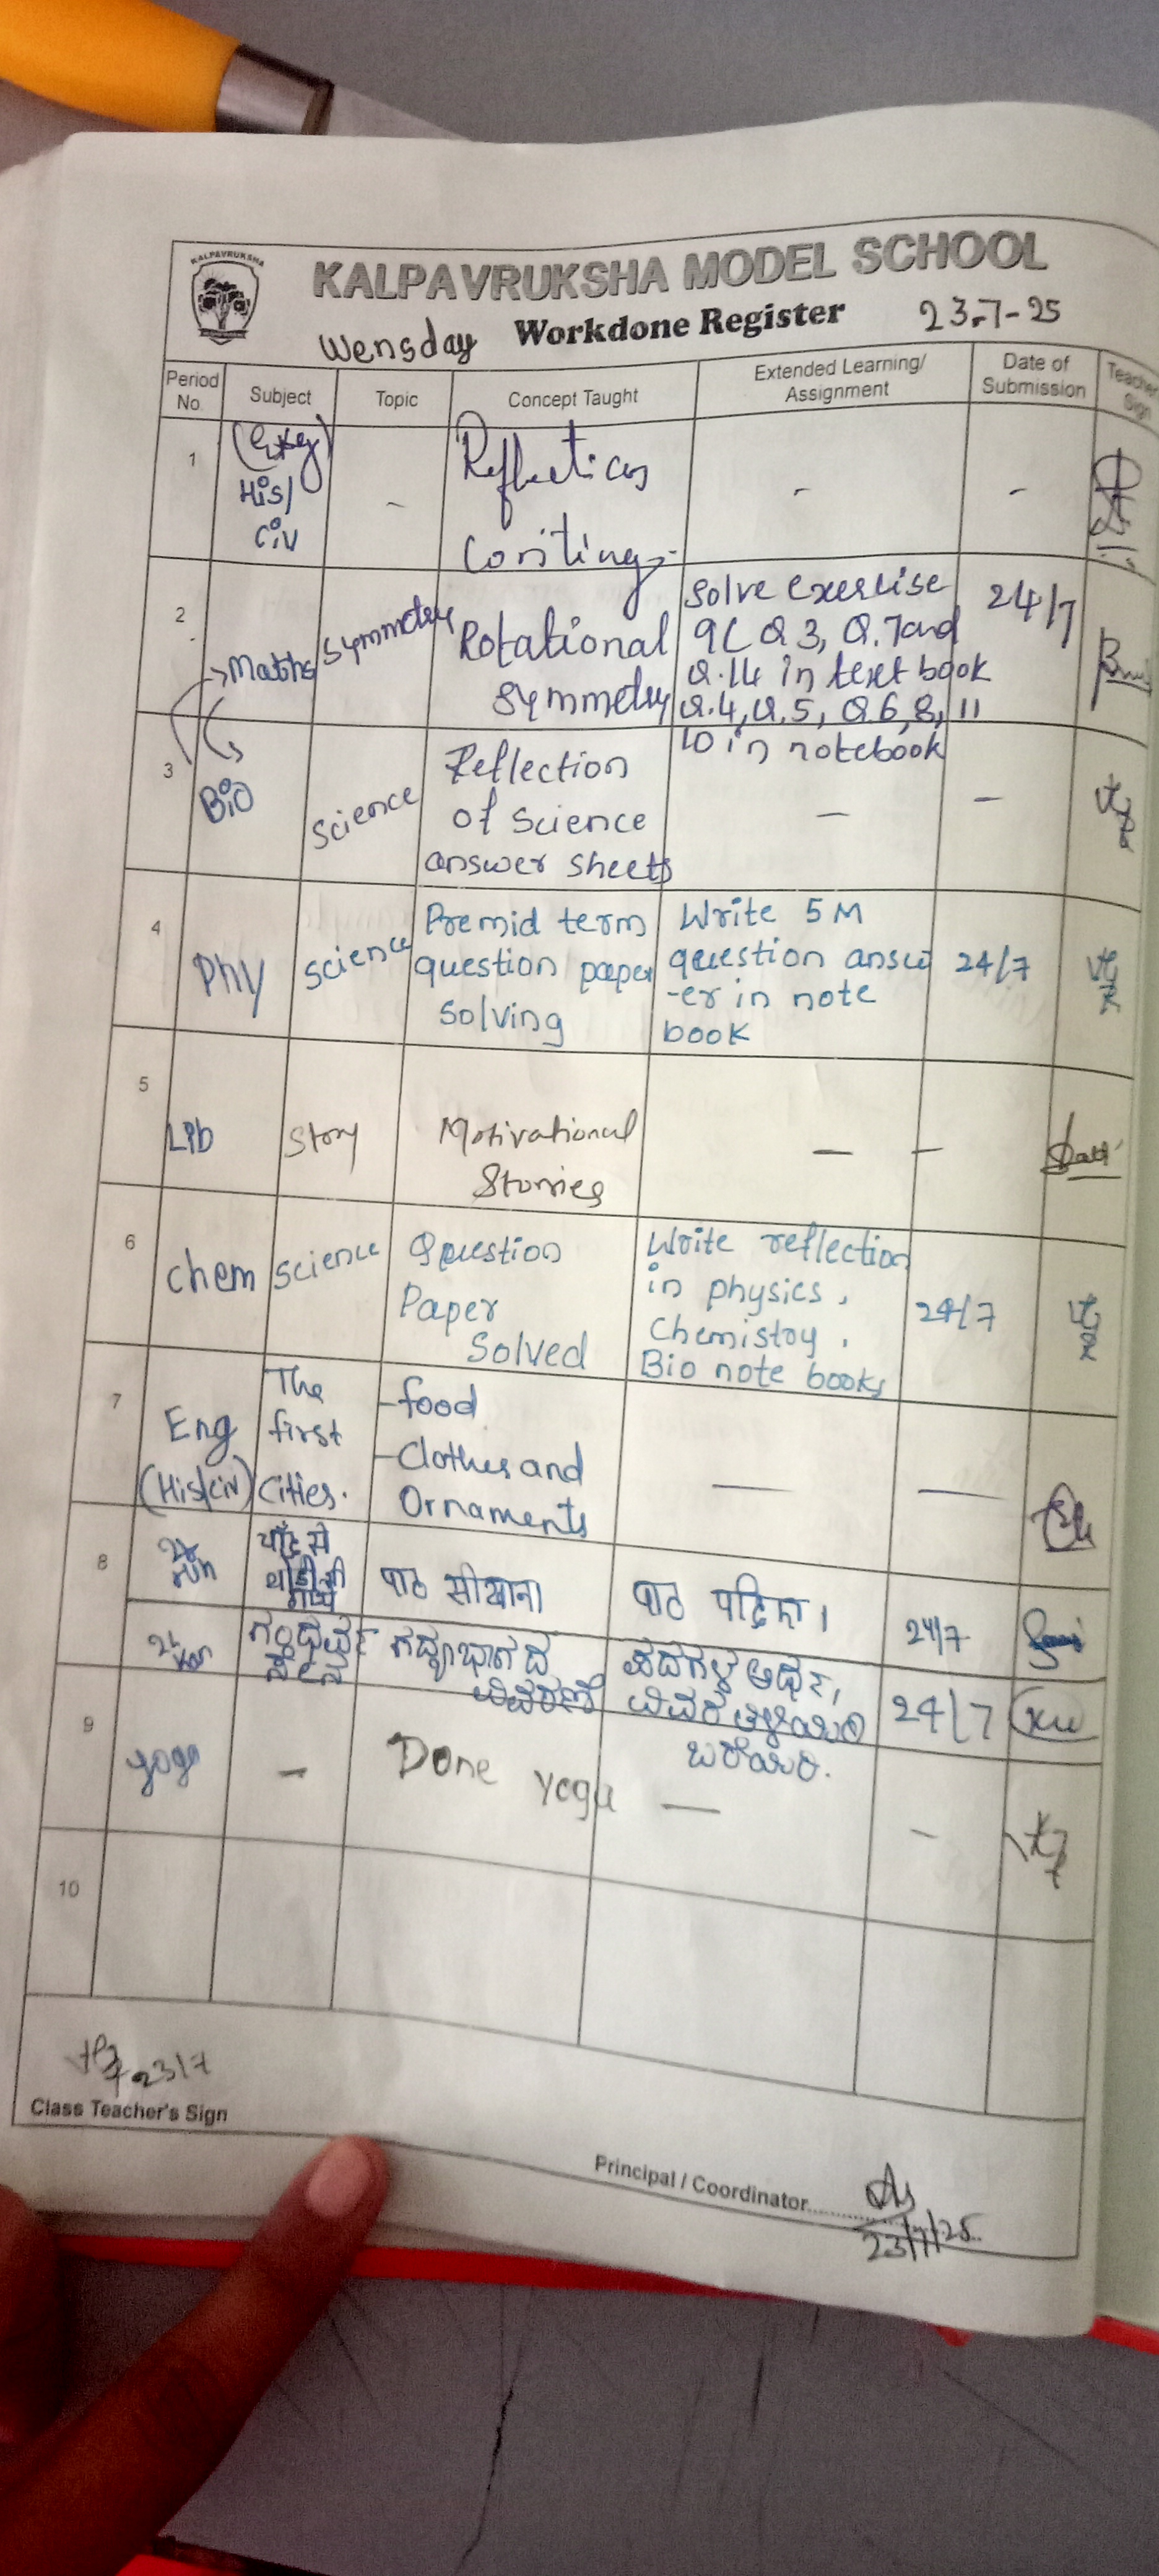 KALPAVRUKSHA
KALPAVRUKSHA MODEL SCHOOL
Wensday Workdone Register 23-7-25
Period No. Subject Topic Concept Taught Extended Learning/ Assignment Date of Submission Teacher Sign
1 His/ Civ - Reflection - -
2 Maths Symmetry Rotational Symmetry
Solve exercise
9C Q 3, Q.7 and
Q.14 in text book
Q.4, Q.5, Q6, 8, 11
10 in notebook
24/7
3 Bio Science
Reflection
of Science
answer sheets
— —
4 Phy Science
Premid term
question paper
Solving
Write 5 M
question answ
-er in note
book
24/7
5 Lib Story
Motivational
Stories
— —
6 chem science
Question
Paper
Solved
Write reflection
in physics,
Chemistoy,
Bio note books
24/7
7 Eng
(His/civ)
The
first
Cities.
-food
-Clothes and
Ornaments
— —
8
चाँद से
थोड़ी सी
गप्पे
पाठ सीखाना
पाठ पढ़िए।
24/7
ಗದ್ಯಭಾಗದ
ವಿವರಣೆ
ಪದಗಳ ಅರ್ಥ,
ಬರೆಯಿರಿ.
24/7
9 yoga - Done yoga — -
10
23/7
Class Teacher's Sign
Principal / Coordinator
23/7/25